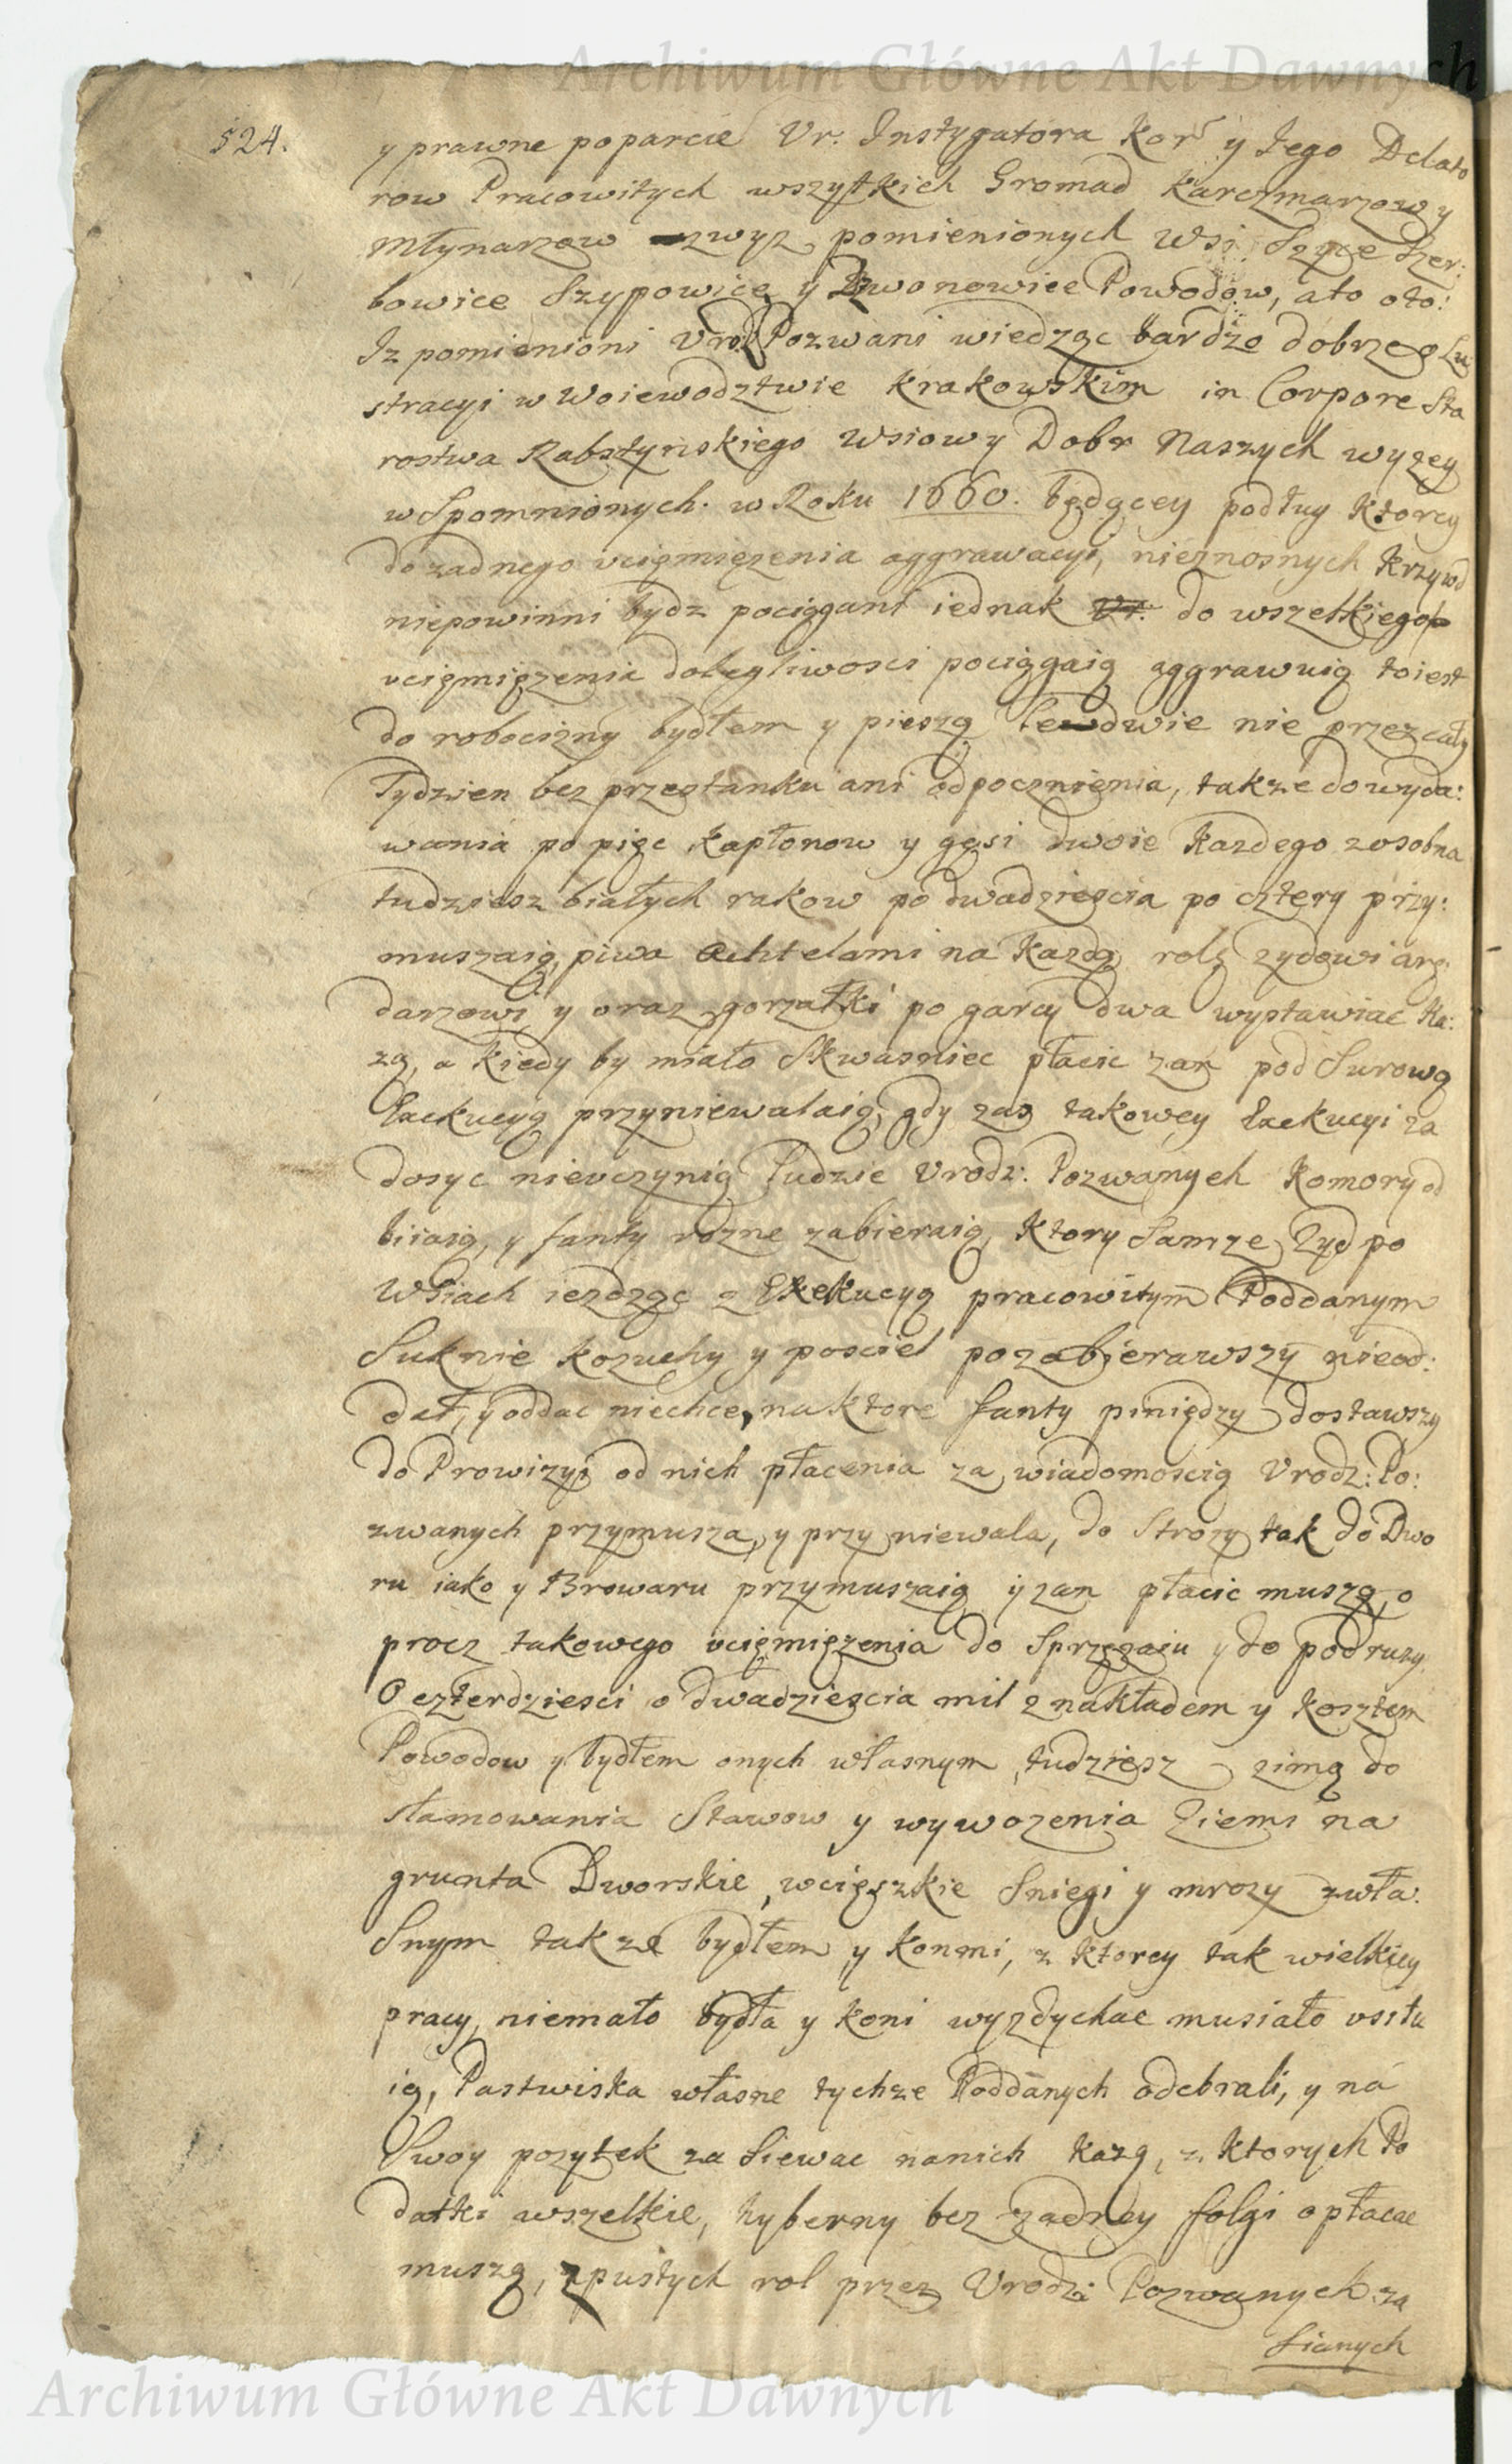 Archiwum Główne Akt Dawnych
524.
y prawne poparcie Vr: Instygatora Kor y Jego Delato
row Pracowitych wszytkich Gromad Karczmarzow y
Młynarzow zwyz pomienionych Wsi Szyce Szer:
bowice Szypowice y Dzwonowice Powodow, ato oto:
Iz pomienioni Urodz Pozwani wiedząc bardzo dobrze o Lu
stracyi w Woiewodztwie Krakowskim in Corpore Sta
rostwa Rabsztynskiego Wsiowy Dobr Naszych wyzey
wspomnionych. w Roku 1660. będącey podług ktorey
do zadnego ucięmięzenia aggrawacyi, nieznosnych krzywd
niepowinni bydz pociągani iednak do wszelkiego
ucięmięzenia dolegliwosci pociągaią aggrawuią to iest
do robocizny bydłem y pieszą ledwie nie przez cały
Tydzien bez przestanku ani odpocznienia, takze do wyda:
wania po pięc kapłonow y gęsi dwoie kazdego zosobna
tudziesz białych rakow po dwadziescia po cztery przy:
muszaią, piwa Achtelami na kazdą rolą zydowi aręn
darzowi y oraz gorzałki po garcy dwa wystawiac ka:
zą, a kiedy by miało skwasniec płacic zan pod Surową
Exekucyą przyniewalaią, gdy zas takowey Exekucyi za
dosyc nieuczynią ludzie Urodz: Pozwanych Komory od
biiaią, y fanty rozne zabieraią, Ktory Samze Zyd po
Wsiach iezdząc z Exekucyą pracowitym Poddanym
Suknie kozuchy y posciel pozabierawszy nieod:
dał, y oddac niechce, na ktore fanty piniędzy dostawszy
do Prowizyi od nich płacenia za wiadomoscią Urodz: Po:
zwanych przymusza, y przyniewala, do Strozy tak do Dwo
ru iako y Browaru przymuszaią y zan płacic muszą, o
procz takowego ucięmięzenia do Sprzęzaiu y do podruzy
O czterdziesci o dwadziescia mil z nakładem y kosztem
Powodow y bydłem onych własnym, tudziesz zimą do
słamowania Stawow y wywozenia Ziemi na
grunta Dworskie, wcięszkie Sniegi y mrozy zwła:
Snym takze bydłem y konmi, z ktorey tak wielkiey
pracy, niemało bydła y koni wyzdychac musiało usiłu
ią, Pastwiska własne tychze Poddanych odebrali, y na
Swoy pozytek za siewac nanich kazą, z ktorych Po
datki wszelkie, hyberny bez zadney folgi opłacac
muszą, zpustych rol przez Urodz: Pozwanych za
sianych
Archiwum Główne Akt Dawnych